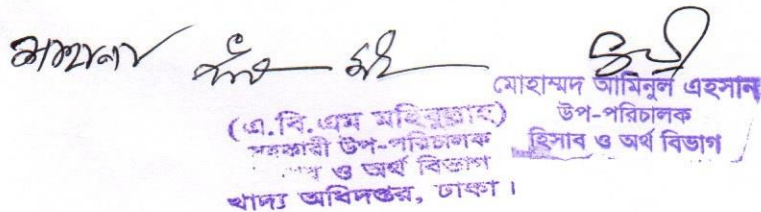 (এ.বি.এম মহিবুল্লাহ)
সহকারী উপ-পরিচালক
ও অর্থ বিভাগ
খাদ্য অধিদপ্তর, ঢাকা।
মোহাম্মদ আমিনুল এহসান
উপ-পরিচালক
হিসাব ও অর্থ বিভাগ